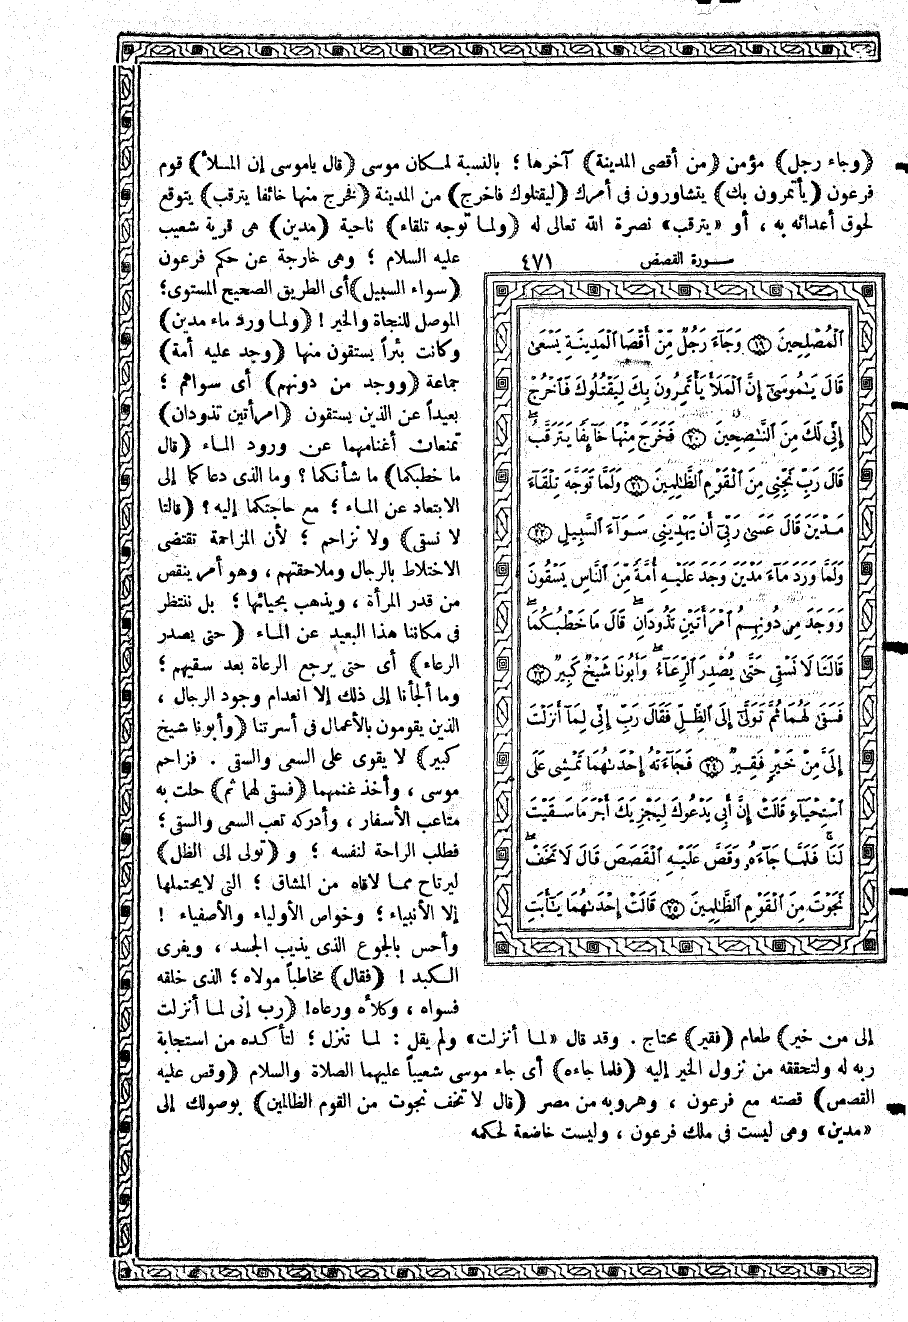 (وجاء رجل) مؤمن (من أقصى المدينة) آخرها ؛ بالنسبة لمكان موسى (قال ياموسى إن الملأ) قوم
فرعون (يأتمرون بك) يتشاورون فى أمرك (ليقتلوك فاخرج) من المدينة (فخرج منها خائفا يترقب) يتوقع
لحوق أعدائه به ، أو «يترقب» نصرة الله تعالى له (ولما توجه تلقاء) ناحية (مدين) هى قرية شعيب
عليه السلام ؛ وهى خارجة عن حكم فرعون
(سواء السبيل) أى الطريق الصحيح المستوى ؛
الموصل للنجاة والخير ! (ولما ورد ماء مدين)
وكانت بئراً يستقون منها (وجد عليه أمة)
جماعة (ووجد من دونهم) أى سواهم ؛
بعيداً عن الذين يستقون (امرأتين تذودان)
تمنعان أغنامهما عن ورود الماء (قال
ما خطبكما) ما شأنكما ؟ وما الذى دعاكما إلى
الابتعاد عن الماء ؛ مع حاجتكما إليه ؟ (قالتا
لا نسقى) ولا نزاحم ؛ لأن المزاحمة تقتضى
الاختلاط بالرجال وملاحقتهم ، وهو أمر ينقص
من قدر المرأة ، ويذهب بحيائها ؛ بل ننتظر
فى مكاننا هذا البعيد عن الماء (حتى يصدر
الرعاء) أى حتى يرجع الرعاة بعد سقيهم ؛
وما ألجأنا إلى ذلك إلا انعدام وجود الرجال ،
الذين يقومون بالأعمال فى أسرتنا (وأبونا شيخ
كبير) لا يقوى على السعى والسقى . فزاحم
موسى ، وأخذ غنمهما (فسقى لهما ثم) حلت به
متاعب الأسفار ، وأدركه تعب السعى والسقى ؛
فطلب الراحة لنفسه ؛ و (تولى إلى الظل)
ليرتاح مما لاقاه من المشاق ؛ التى لايحتملها
إلا الأنبياء ؛ وخواص الأولياء والأصفياء !
وأحس بالجوع الذى يذيب الجسد ، ويفرى
الكبد ! (فقال) مخاطباً مولاه ؛ الذى خلقه
فسواه ، وكلأه ورعاه ! (رب إنى لما أنزلت
سورة القصص ٤٧١
ٱلْمُصْلِحِينَ ﴿١٩﴾ وَجَآءَ رَجُلٌ مِّنْ أَقْصَا ٱلْمَدِينَةِ يَسْعَىٰ
قَالَ يَـٰمُوسَىٰٓ إِنَّ ٱلْمَلَأَ يَأْتَمِرُونَ بِكَ لِيَقْتُلُوكَ فَٱخْرُجْ
إِنِّى لَكَ مِنَ ٱلنَّـٰصِحِينَ ﴿٢٠﴾ فَخَرَجَ مِنْهَا خَآئِفًا يَتَرَقَّبُ ۖ
قَالَ رَبِّ نَجِّنِى مِنَ ٱلْقَوْمِ ٱلظَّـٰلِمِينَ ﴿٢١﴾ وَلَمَّا تَوَجَّهَ تِلْقَآءَ
مَدْيَنَ قَالَ عَسَىٰ رَبِّىٓ أَن يَهْدِيَنِى سَوَآءَ ٱلسَّبِيلِ ﴿٢٢﴾
وَلَمَّا وَرَدَ مَآءَ مَدْيَنَ وَجَدَ عَلَيْهِ أُمَّةً مِّنَ ٱلنَّاسِ يَسْقُونَ
وَوَجَدَ مِن دُونِهِمُ ٱمْرَأَتَيْنِ تَذُودَانِ ۖ قَالَ مَا خَطْبُكُمَا ۖ
قَالَتَا لَا نَسْقِى حَتَّىٰ يُصْدِرَ ٱلرِّعَآءُ ۖ وَأَبُونَا شَيْخٌ كَبِيرٌ ﴿٢٣﴾
فَسَقَىٰ لَهُمَا ثُمَّ تَوَلَّىٰٓ إِلَى ٱلظِّلِّ فَقَالَ رَبِّ إِنِّى لِمَآ أَنزَلْتَ
إِلَىَّ مِنْ خَيْرٍ فَقِيرٌ ﴿٢٤﴾ فَجَآءَتْهُ إِحْدَىٰهُمَا تَمْشِى عَلَى
ٱسْتِحْيَآءٍ قَالَتْ إِنَّ أَبِى يَدْعُوكَ لِيَجْزِيَكَ أَجْرَ مَا سَقَيْتَ
لَنَا ۚ فَلَمَّا جَآءَهُۥ وَقَصَّ عَلَيْهِ ٱلْقَصَصَ قَالَ لَا تَخَفْ ۖ
نَجَوْتَ مِنَ ٱلْقَوْمِ ٱلظَّـٰلِمِينَ ﴿٢٥﴾ قَالَتْ إِحْدَىٰهُمَا يَـٰٓأَبَتِ
إلى من خير) طعام (فقير) محتاج . وقد قال «لما أنزلت» ولم يقل : لما تنزل ؛ لتأكده من استجابة
ربه له ولتحققه من نزول الخير إليه (فلما جاءه) أى جاء موسى شعيباً عليهما الصلاة والسلام (وقص عليه
القصص) قصته مع فرعون ، وهروبه من مصر (قال لا تخف نجوت من القوم الظالمين) بوصولك إلى
«مدين» وهى ليست فى ملك فرعون ، وليست خاضعة لحكمه